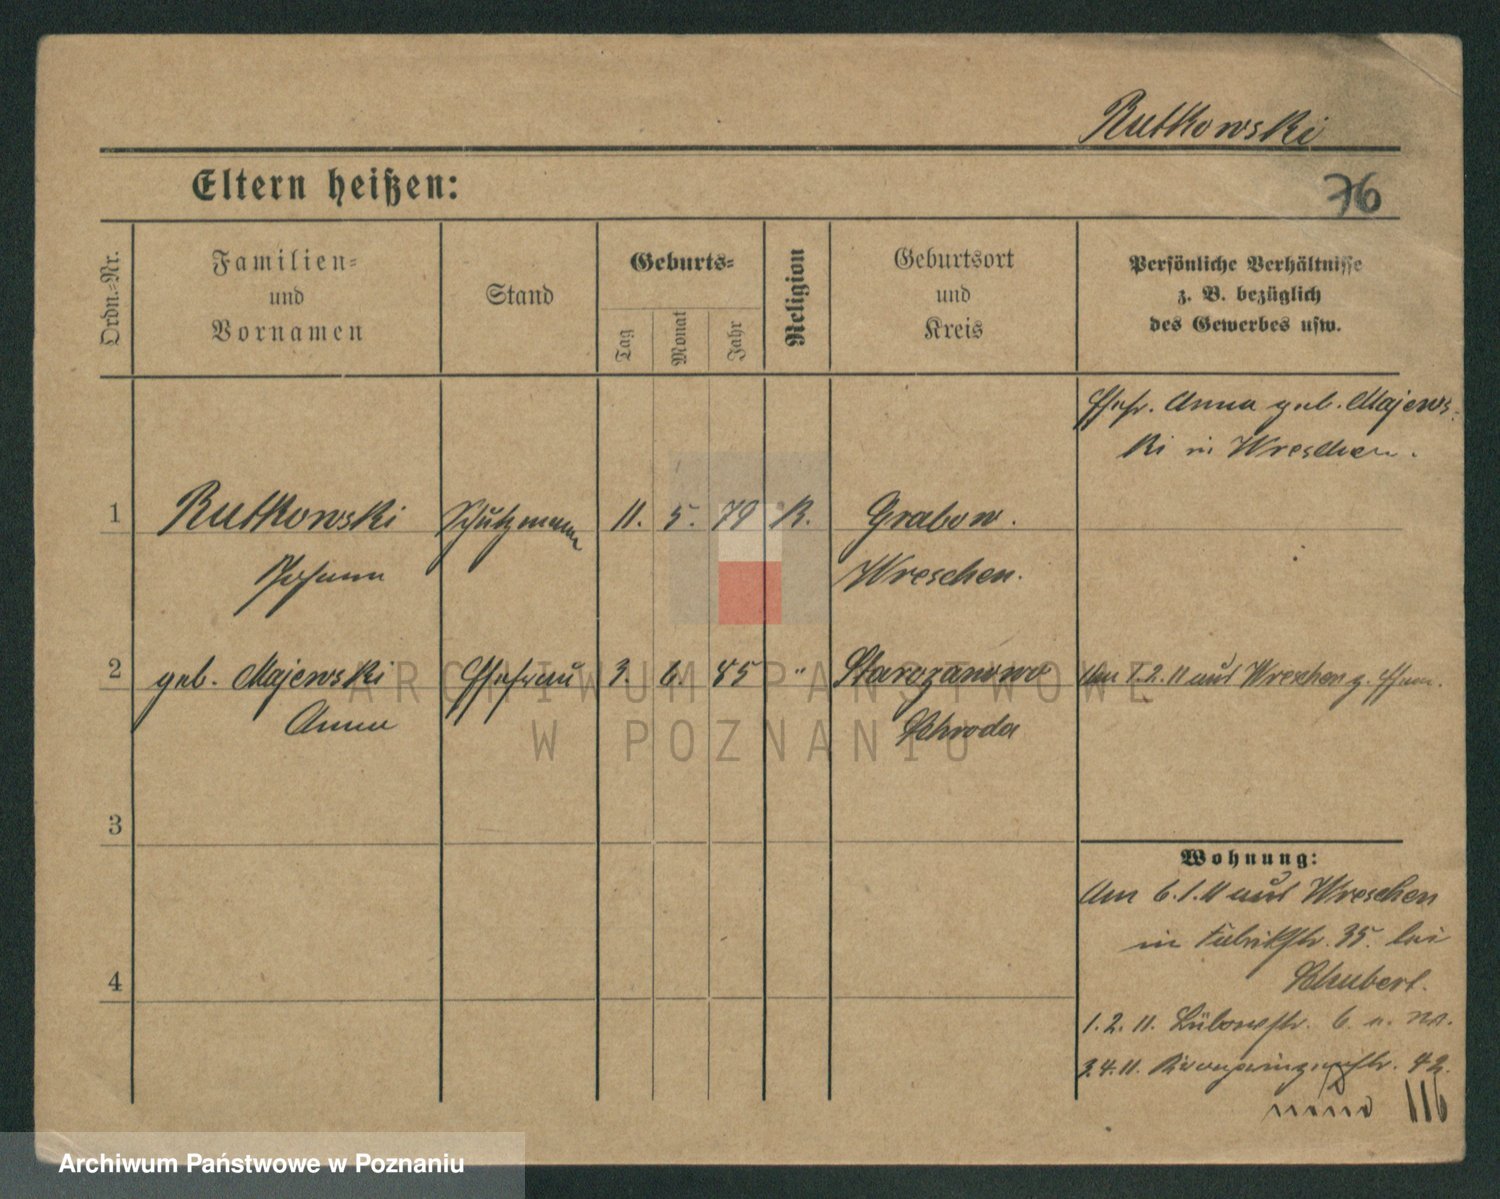 Rutkowski
Eltern heißen:
76
Ordn.-Nr.
Familien-
und
Vornamen
Stand
Geburts-
Tag
Monat
Jahr
Religion
Geburtsort
und
Kreis
Persönliche Verhältnisse
z. B. bezüglich
des Gewerbes usw.
Ehefr. Anna geb. Majews-
ki in Wreschen.
1 Rutkowski Schutzmann 11. 5. 79 K. Grabow.
Johann Wreschen.
2 geb. Majewski Ehefrau 3. 6. 85 " Starczanowo Am 1.2.11 aus Wreschen z. Ehem.
Anna Schroda
3
4
Wohnung:
Am 6.1.11 aus Wreschen
in Fabrikstr. 35. bei
Schubert.
1. 2. 11. Lübowstr. 6
3.4.11. Kronprinzenstr. 42.
116
ARCHIWUM PAŃSTWOWE
W POZNANIU
Archiwum Państwowe w Poznaniu